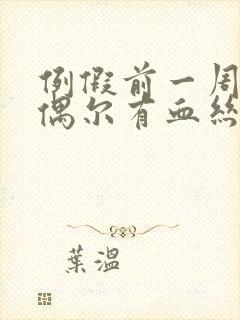 例假前一周
偶尔有血丝
葉溫